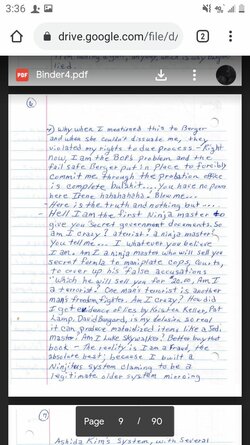 3:36
4G
drive.google.com/file/d/
2
PDF
Binder4.pdf
lied.
6
7) Why when I mentioned this to Berger
and when she couldn't dissuade me, they
violated my rights to due process - Right
now, I am the BOP's problem, and the
fail safe Berger put in place to forcibly
commit me through the probation office
is complete bullshit... You have no power
here Irene hahahahaha! Blow me...
Here is the truth and nothing but...
Hell I am the first Ninja master to
give you Secret government documents. So
am I crazy? a terorist? a ninja master?
You tell me... I whatever you believe
I am. Am I a ninja master who will sell you
secret formla to maniplate cops, courts,
to cover up his false accusations
which he will sell you for
a terrorist! One man's terrorist is another
man's freedom fighter. Am I Crazy? How did
I get evidence of lies by Kristen Keller, Pat
Lamp, David Bungard, is my delusion so real
it can produce matadized items like a Jedi
Master? Am I Luke Skywalker? Better buy that
book - The reality is I am a Fraud, the
absolute best; because I built a
Ninjitsu System claming to be a
legitimate older system micrcing
Page 9 / 90
Ashida Kim's System, with several